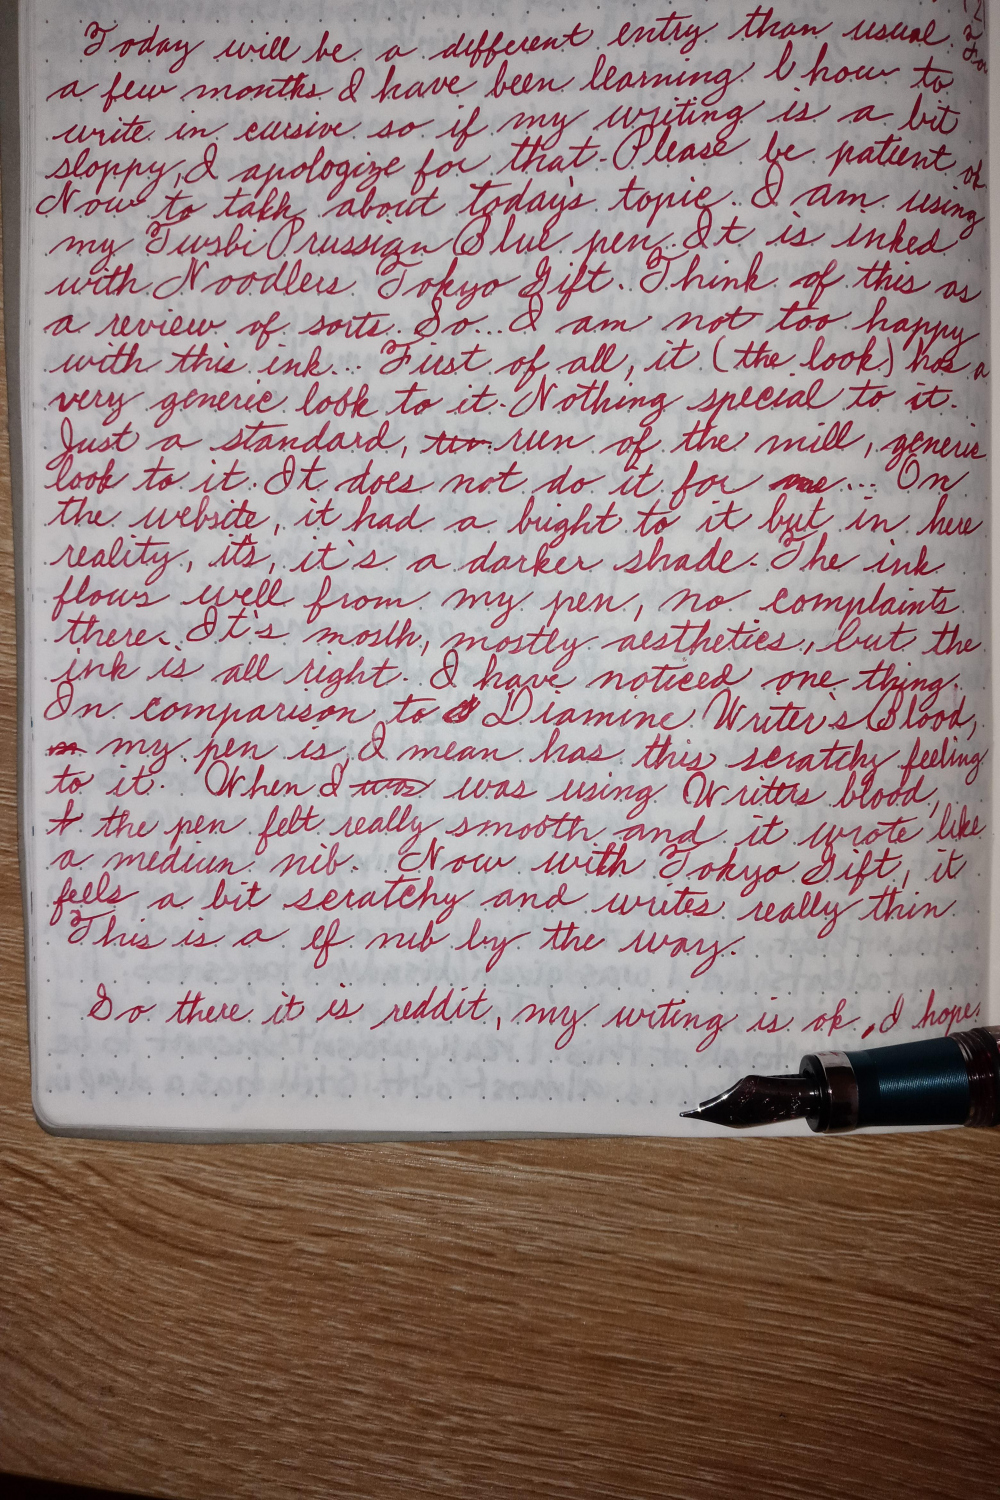 Today will be a different entry than usual. For
a few months I have been learning how to
write in cursive so if my writing is a bit
sloppy, I apologize for that. Please be patient ok
Now to talk about today's topic. I am using
my Twsbi Prussian Blue pen. It is inked
with Noodlers Tokyo Gift. Think of this as
a review of sorts. So... I am not too happy
with this ink... First of all, it (the look) has a
very generic look to it. Nothing special to it.
Just a standard, run of the mill, generic
look to it. It does not do it for me... On
the website, it had a bright to it but in here
reality, its, it's a darker shade. The ink
flows well from my pen, no complaints
there. It's moslh, mostly aesthetics, but the
ink is all right. I have noticed one thing.
In comparison to Diamine Writer's Blood,
my pen is, I mean has this scratchy feeling
to it. When I was was using Writers blood,
the pen felt really smooth and it wrote like
a medium nib. Now with Tokyo Gift, it
feels a bit scratchy and writes really thin
This is a ef nib by the way.
So there it is reddit, my writing is ok, I hope.